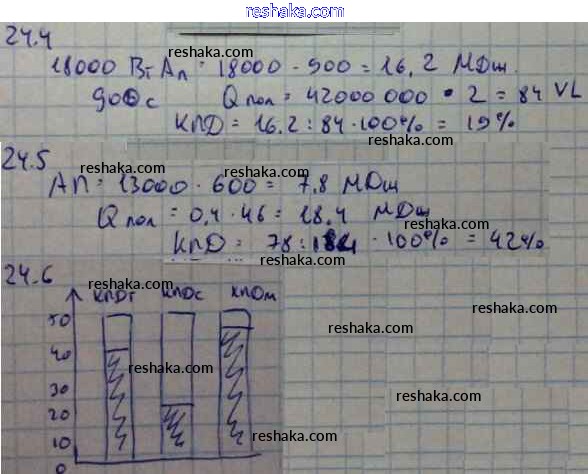 reshaka.com
24.4
18000 Вт Aп = 18000 · 900 = 16,2 МДж.
900 с Qпол = 42000000 · 2 = 84
КПД = 16.2 : 84 · 100% = 19%
24.5
AП = 13000 · 600 = 7,8 МДж
Qпол = 0,4 · 46 = 18.4 МДж
КПД = 78 : 184 · 100% = 42%
24.6
КПДт КПДс КПДм
50
40
30
20
10
0
reshaka.com
reshaka.com
reshaka.com
reshaka.com
reshaka.com
reshaka.com
reshaka.com
reshaka.com
reshaka.com
reshaka.com
reshaka.com
reshaka.com